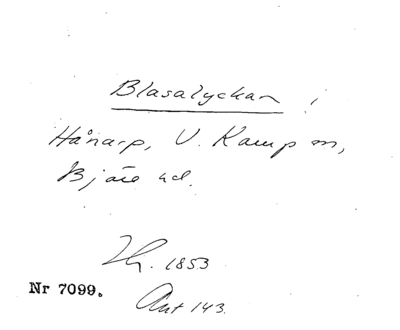 Blasalyckan i
Hånarp, V. Karup sn,
Bjäre hd.
Lh. 1853
Nr 7099.
Ant 143.